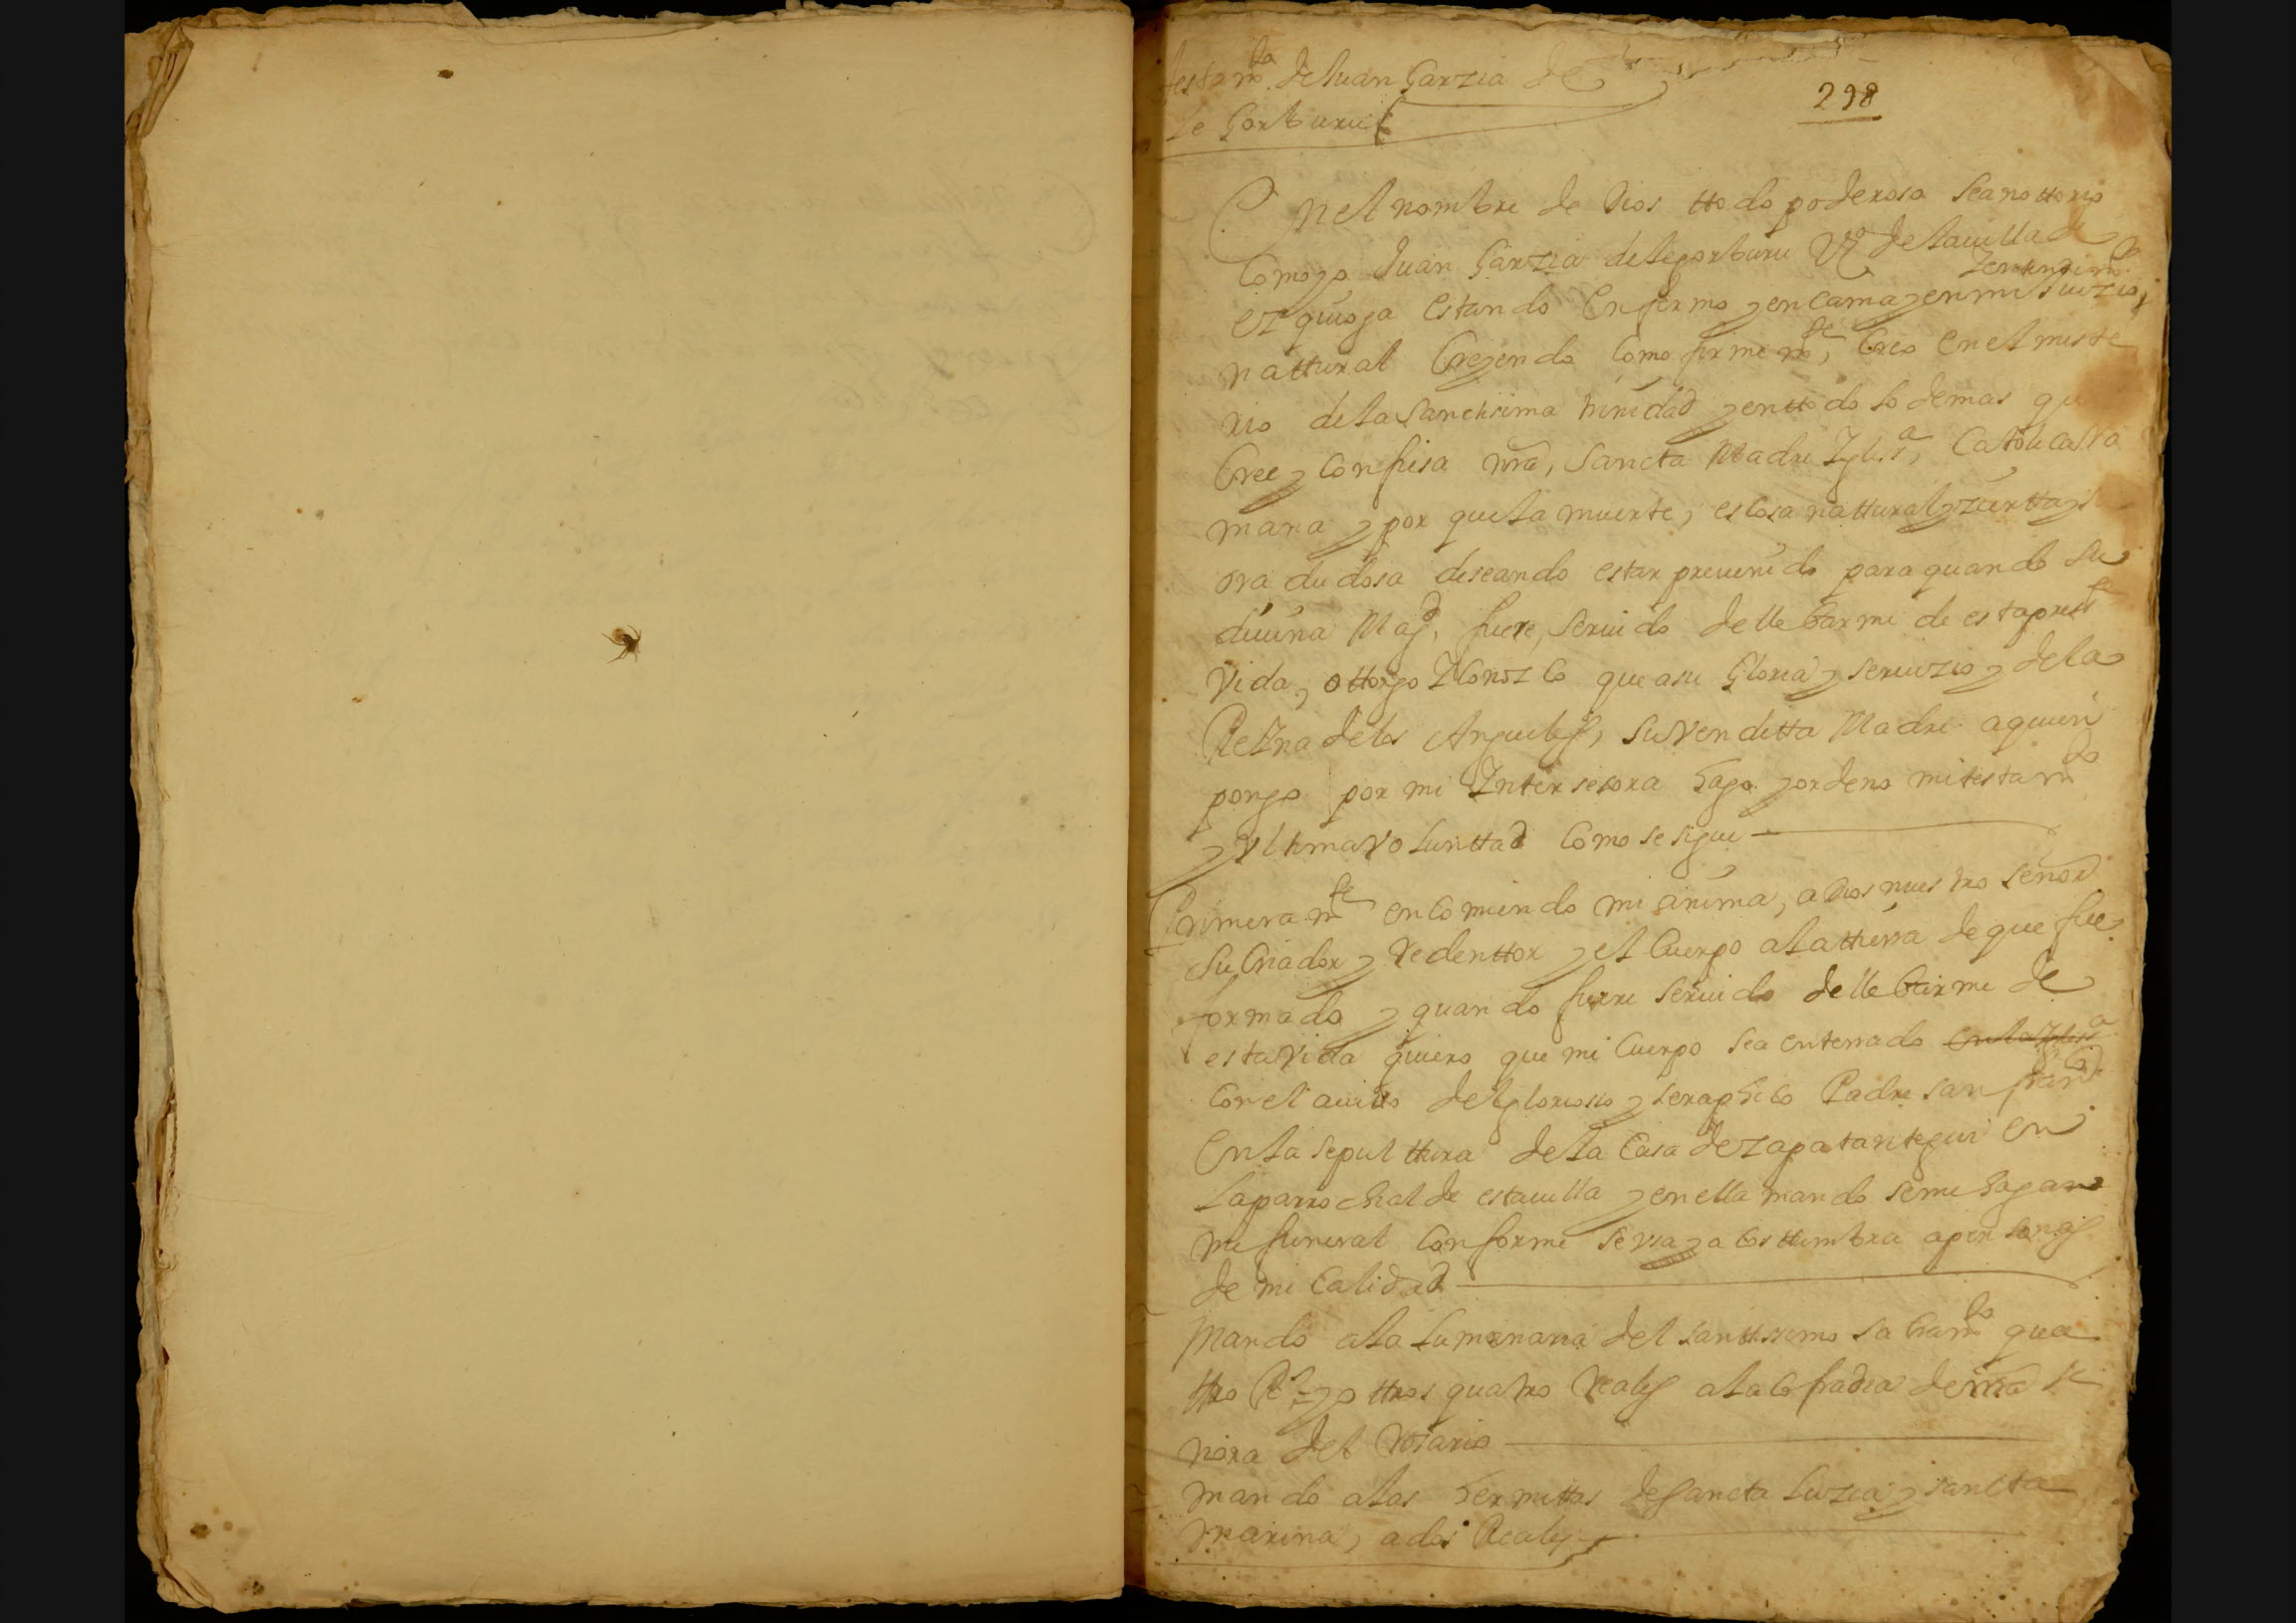 testamto de Juan Garzia de
Legorburu
298
En el nombre de Dios ttodo poderoso sea nottorio
Como yo Juan Garzia de legorburu Vzo de la uilla de
ezquioga estando enfermo y en cama y en mi Juizio,
y entendimto
nattural Creyendo Como firmemte, Creo en el miste
rio de la Sanctisima trinidad y en ttodo lo demas que
Cree y Confiesa nra, Sancta Madre Iglesa, Catolica Ro
mana y por que la muerte, es Cosa nattural y zierta y su
ora dudosa deseando estar preuenido para quando su
diuina Magd, fuere, seruido de llebarme de esta presste
Vida, ottorgo Y Conozco que a su Gloria y seruizio y de la
Reina de los Angueles, su Venditta Madre a quien
pongo por mi Intersesora hago y ordeno mi testamto
y Ultima Voluntad Como se sigue
Primeramte encomiendo mi anima, a Dios nuestro señor
su Criador y Redenttor y el Cuerpo a la ttierra de que fue
formado y quando fuere seruido de llebarme de
esta Vida quiero que mi Cuerpo sea enterrado en la Iglesa
Con el auito del glorioso y seraphico Padre san franco
en la sepulttura de la Casa de zapatantegui en
la parrochial de esta uilla y en ella mando se me hagan
mi funeral Conforme se usa y acosttumbra a personas
de mi Calidad
Mando a la lumenaria del santtissimo sacramto qua
ttro Rs y ottros quatro Reales a la Cofradia de nra se
ñora del Rosario
mando a las hermittas de Sancta Luzia y sancta
marina, a dos Reales